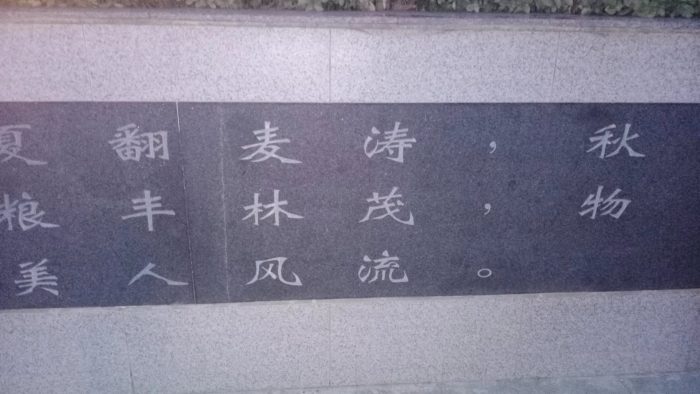 夏翻麦涛，秋
粮丰林茂，物
美人风流。